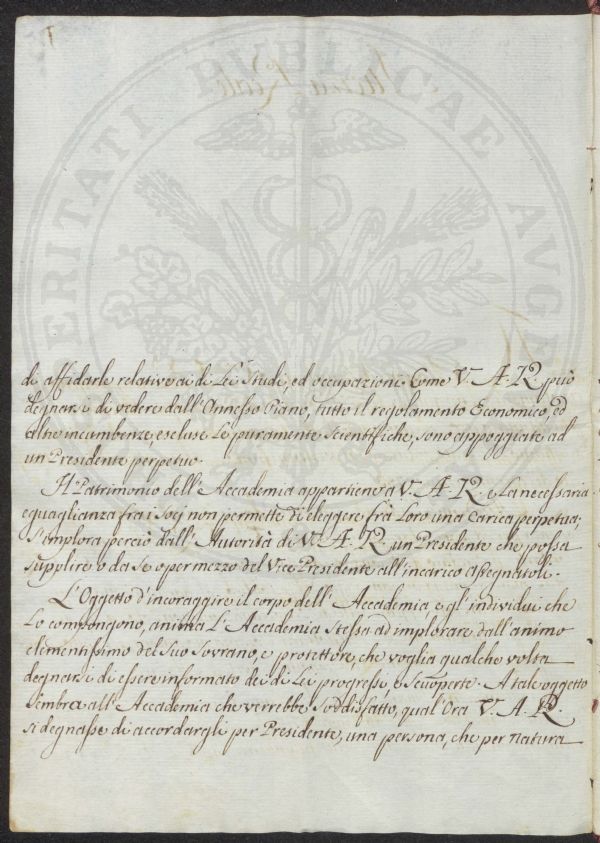 VERITATI PUBLICAE AUGE
di affidarle relativo ai di Lei Studi, ed occupazioni. Come V. A. R. può
degnarsi di vedere dall'Annesso Piano, tutto il regolamento Economico, ed
altre incumbenze, escluse Le puramente Scientifiche, sono appoggiate ad
un Presidente perpetuo.
Il Patrimonio dell'Accademia appartiene a V. A. R. e La necessaria
eguaglianza fra i Socj non permette di eleggere frà Loro una Carica perpetua;
S'implora perciò dall'Autorità di V. A. R. un Presidente che possa
supplire o da se o per mezzo del Vice Presidente all'incarico assegnatoli.
L'Oggetto d'incoraggire il corpo dell'Accademia e gl'individui che
Lo compongono, anima L'Accademia stessa ad implorare dall'animo
clementissimo del Suo Sovrano, e protettore, che voglia qualche volta
degnarsi di essere informato dei di Lei progressi, e scuoperte. A tale oggetto
Sembra all'Accademia che verrebbe Soddisfatto, qual'Ora V. A. R.
si degnasse di accordargli per Presidente, una persona, che per natura